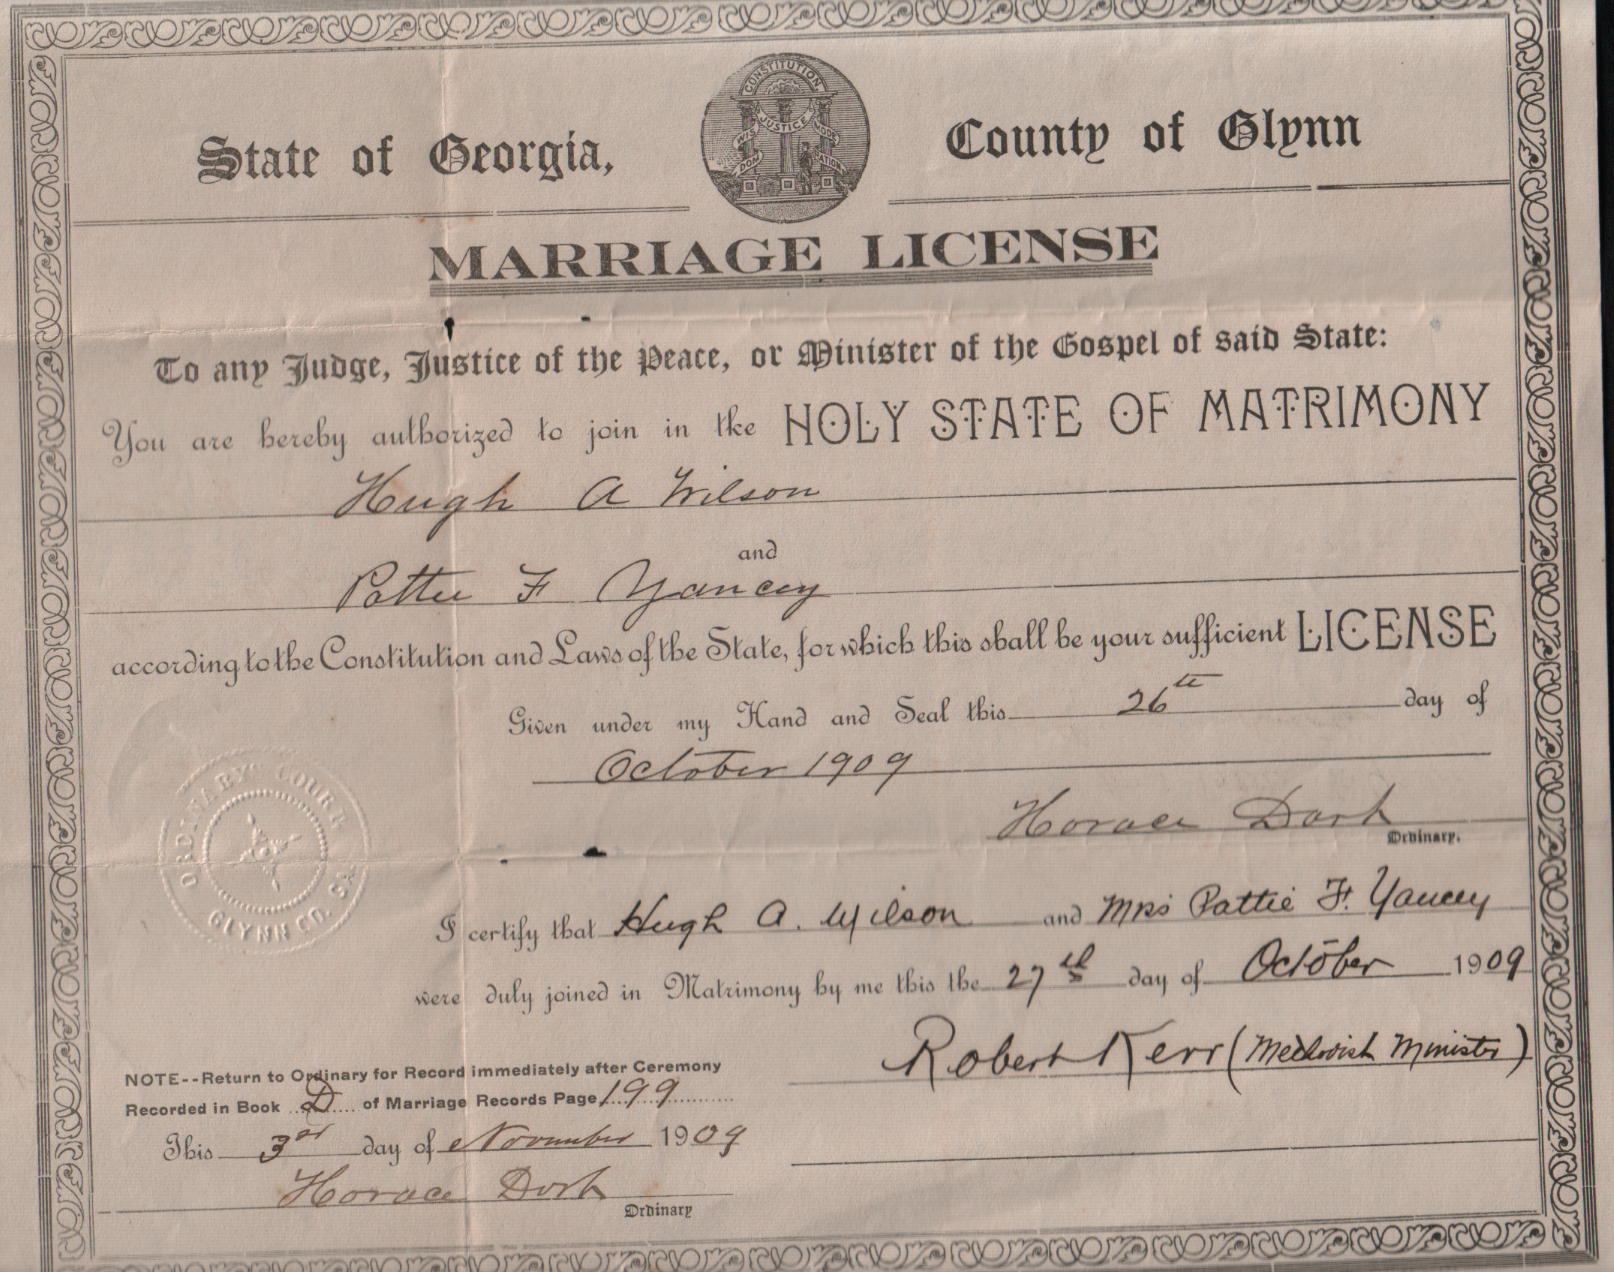 State of Georgia, County of Glynn
CONSTITUTION
WISDOM JUSTICE MODERATION
MARRIAGE LICENSE
To any Judge, Justice of the Peace, or Minister of the Gospel of said State:
You are hereby authorized to join in the HOLY STATE OF MATRIMONY
Hugh A Wilson
and
Pattie F Yancey
according to the Constitution and Laws of the State, for which this shall be your sufficient LICENSE
Given under my Hand and Seal this 26th day of
October 1909
Horace Dart
Ordinary.
ORDINARY'S COURT
GLYNN CO. GA.
I certify that Hugh A. Wilson and Mrs Pattie F. Yancey
were duly joined in Matrimony by me this the 27th day of October 1909
Robert Kerr (Methodist Minister)
NOTE--Return to Ordinary for Record immediately after Ceremony
Recorded in Book D of Marriage Records Page 199
This 3rd day of November 1909
Horace Dart
Ordinary